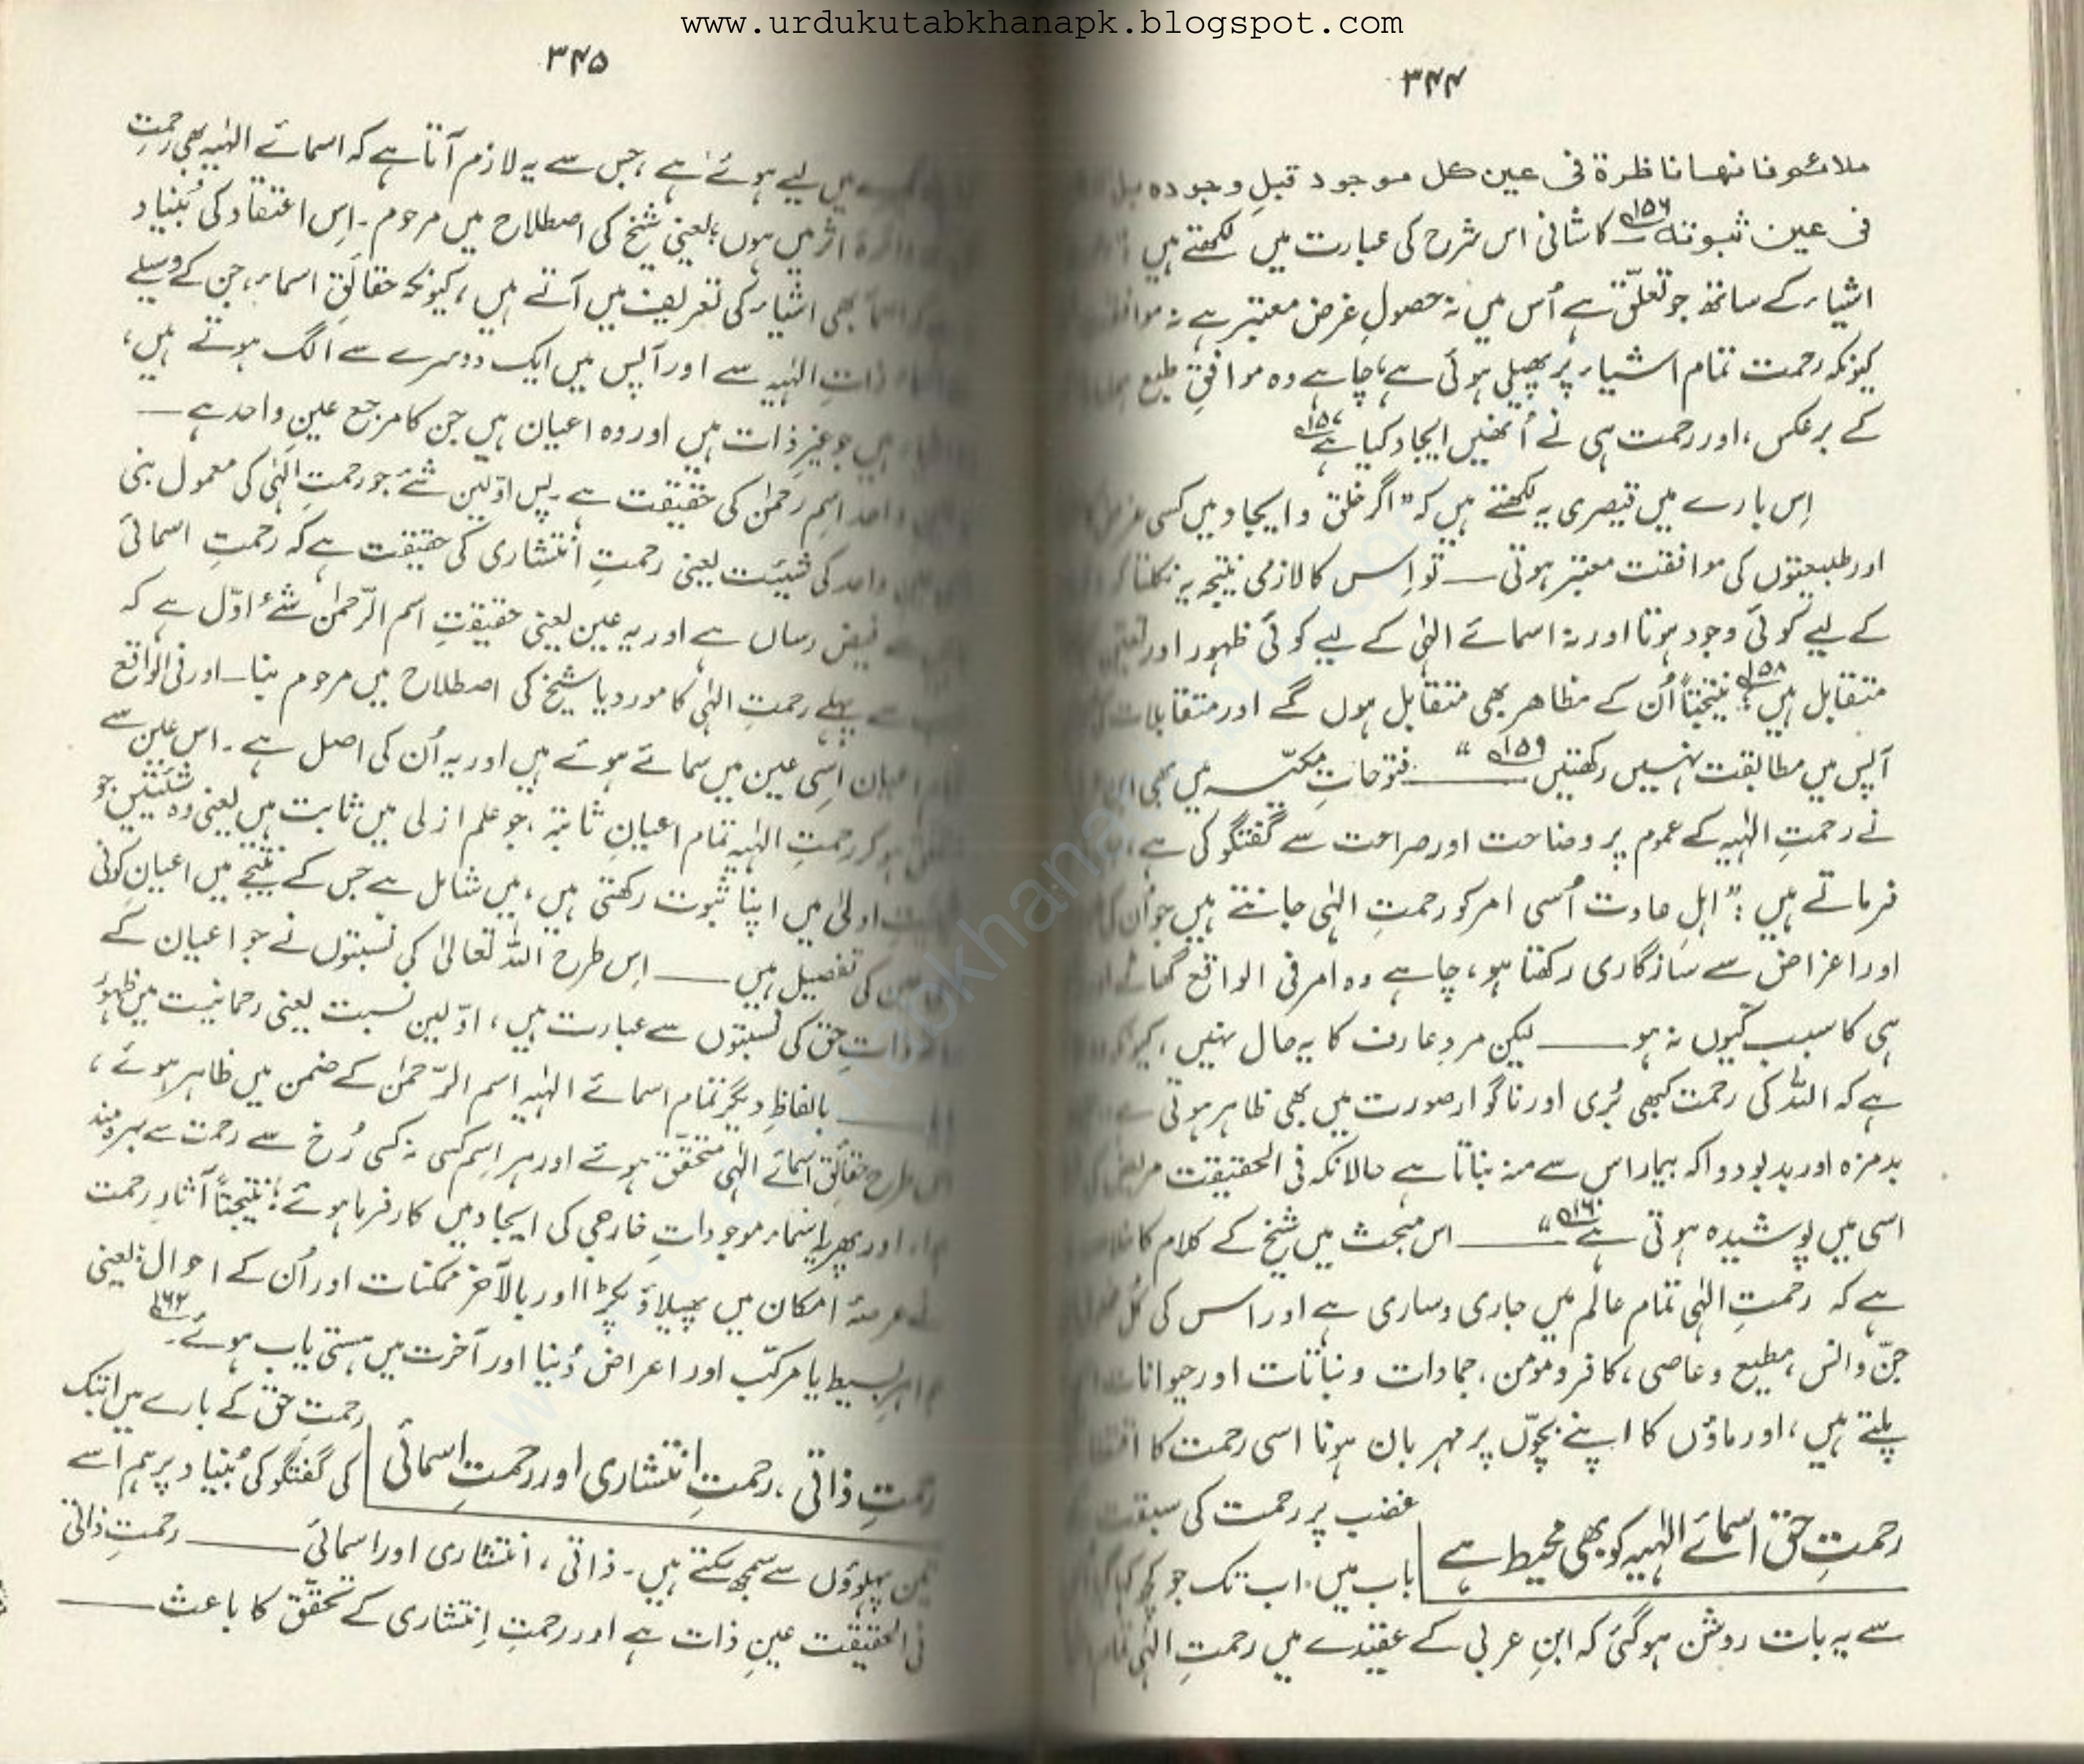 www.urdukutabkhanapk.blogspot.com
۳۴۴
ملائمو فانها ناظرة فی عین کل موجود قبل وجوده بل
فی عین ثبوته ۱۵۶ کاشانی اس شرح کی عبارت میں لکھتے ہیں :
اشیاء کے ساتھ جو تعلّق ہے اُس میں نہ حصولِ غرض معتبر ہے نہ
کیونکہ رحمت تمام اشیاء پر پھیلی ہوئی ہے، چاہے وہ موافقِ طبع
کے برعکس، اور رحمت ہی نے اُنھیں ایجاد کیا ہے ۱۵۷
اِس بارے میں قیصری یہ لکھتے ہیں کہ "اگر خلق و ایجاد میں کسی
اور طبیعتوں کی موافقت معتبر ہوتی — تو اِس کا لازمی نتیجہ یہ نکلتا
کے لیے کوئی وجود ہوتا اور نہ اسمائے الٰہی کے لیے کوئی ظہور اور
متقابل ہیں ۱۵۸؛ نتیجتاً اُن کے مظاہر بھی متقابل ہوں گے اور متقابلات
آپس میں مطابقت نہیں رکھتیں ۱۵۹" — فتوحاتِ مکیّہ میں بھی
نے رحمتِ الٰہیہ کے عموم پر وضاحت اور صراحت سے گفتگو کی ہے
فرماتے ہیں : "اہلِ عادت اُسی امر کو رحمتِ الٰہی جانتے ہیں جو اُن
اور اعراض سے سازگاری رکھتا ہو، چاہے وہ امر فی الواقع گھاٹے
ہی کا سبب کیوں نہ ہو — لیکن مردِ عارف کا یہ حال نہیں،
ہے کہ اللہ کی رحمت کبھی بُری اور ناگوار صورت میں بھی ظاہر ہوتی
بدمزہ اور بدبو دوا کہ بیمار اس سے منہ بناتا ہے حالانکہ فی الحقیقت
اسی میں پوشیدہ ہوتی ہے ۱۶۰" — اس مبحث میں شیخ کے کلام کا
ہے کہ رحمتِ الٰہی تمام عالم میں جاری و ساری ہے اور اس کی
جنّ و انس، مطیع و عاصی، کافر و مومن، جمادات و نباتات اور حیوانات
پلتے ہیں، اور ماؤں کا اپنے بچّوں پر مہربان ہونا اسی رحمت کا
رحمتِ حق اسمائے الٰہیہ کو بھی محیط ہے
غضب پر رحمت کی سبقت
باب میں، اب تک جو کچھ
سے یہ بات روشن ہوگئی کہ ابنِ عربی کے عقیدے میں رحمتِ الٰہی
۳۴۵
میں لیے ہوئے ہے، جس سے یہ لازم آتا ہے کہ اسمائے الٰہیہ بھی رحمتِ
اثر میں ہوں؛ یعنی شیخ کی اصطلاح میں مرحوم۔ اِس اعتقاد کی بُنیاد
بھی اشیاء کی تعریف میں آتے ہیں، کیونکہ حقائقِ اسماء، جن کے وسیلے
ذاتِ الٰہیہ سے اور آپس میں ایک دوسرے سے الگ ہوتے ہیں،
ہیں جو غیرِ ذات ہیں اور وہ اعیان ہیں جن کا مرجع عینِ واحد ہے —
واحد اسمِ رحمٰن کی حقیقت ہے۔ پس اوّلین شئے جو رحمتِ الٰہی کی معمول بنی
واحد کی شیئیت یعنی رحمتِ انتشاری کی حقیقت ہے کہ رحمتِ اسمائی
فیض رساں ہے اور یہ عین یعنی حقیقتِ اسم الرّحمٰن شئے اوّل ہے کہ
سے پہلے رحمتِ الٰہی کا مورد یا شیخ کی اصطلاح میں مرحوم بنا — اور فی الواقع
اعیان اسی عین میں سمائے ہوئے ہیں اور یہ اُن کی اصل ہے۔ اس عین سے
ہوکر رحمتِ الٰہیہ تمام اعیانِ ثابتہ، جو علم ازلی میں ثابت ہیں یعنی وہ شیئتیں جو
اولیٰ میں اپنا ثبوت رکھتی ہیں، میں شامل ہے جس کے نتیجے میں اعیانِ کونی
کی تفصیل ہیں — اِس طرح اللہ تعالیٰ کی نسبتوں نے جو اعیان کے
ذاتِ حق کی نسبتوں سے عبارت ہیں، اوّلین نسبت یعنی رحمانیت میں ظہور
— بالفاظِ دیگر تمام اسمائے الٰہیہ اسم الرّحمٰن کے ضمن میں ظاہر ہوئے،
اس طرح حقائقِ اسمائے الٰہی متحقق ہوئے اور ہر اسم کسی نہ کسی رُخ سے رحمت سے بہرہ مند
اور پھر یہ اسماء موجوداتِ خارجی کی ایجاد میں کارفرما ہوئے؛ نتیجتاً آثارِ رحمت
عرصۂ امکان میں پھیلاؤ پکڑا اور بالآخر ممکنات اور اُن کے احوال؛ یعنی
بسیط یا مرکّب اور اعراض دُنیا اور آخرت میں ہستی یاب ہوئے۔ ۱۶۲
رحمتِ ذاتی، رحمتِ انتشاری اور رحمتِ اسمائی
رحمتِ حق کے بارے میں اب تک
کی گفتگو کی بُنیاد پر ہم اسے
تین پہلوؤں سے سمجھ سکتے ہیں۔ ذاتی، انتشاری اور اسمائی — رحمتِ ذاتی
فی الحقیقت عینِ ذات ہے اور رحمتِ اِنتشاری کے تحقّق کا باعث —